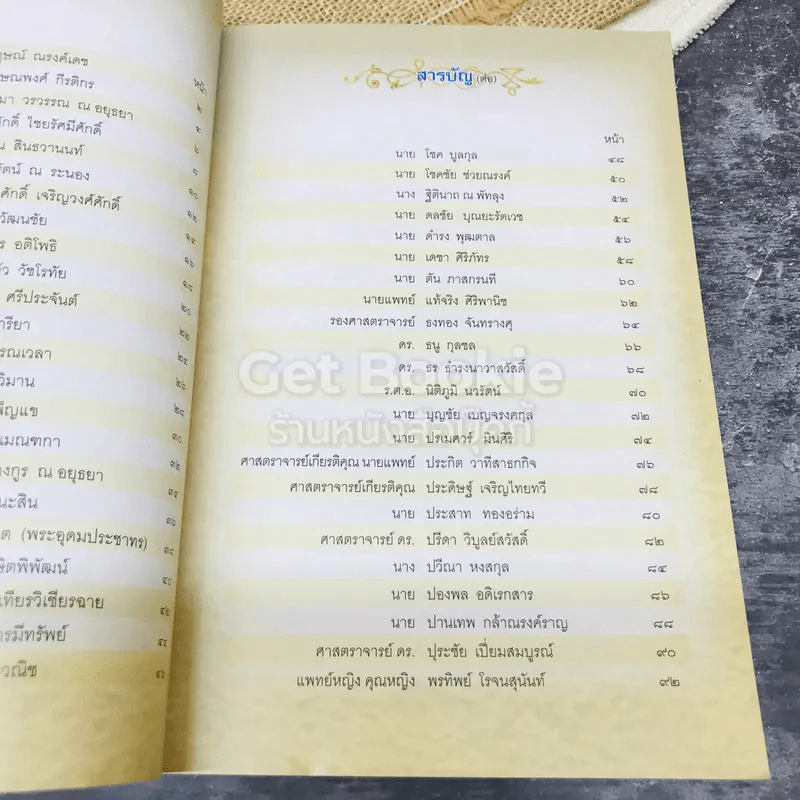 ณรงค์เดช
กีรติกร
หน้า
๒
วรวรรณ ณ อยุธยา
๔
ไชยรัศมีศักดิ์
๖
สินธวานนท์
๘
ณ ระนอง
๑๐
เจริญวงศ์ศักดิ์
๑๒
๑๔
อติโพธิ
๑๖
วัชโรทัย
๑๘
ศรีประจันต์
๒๐
๒๒
๒๔
๒๖
๒๘
๓๐
๓๒
ณ อยุธยา
๓๔
๓๖
(พระอุดมประชาทร)
๓๘
๔๐
๔๒
๔๔
๔๖
สารบัญ (ต่อ)
หน้า
นาย โชค บูลกุล ๔๘
นาย โชคชัย ช่วยณรงค์ ๕๐
นาง ฐิตินาถ ณ พัทลุง ๕๒
นาย ดลชัย บุณยะรัตเวช ๕๔
นาย ดำรง พุฒตาล ๕๖
นาย เดชา ศิริภัทร ๕๘
นาย ตัน ภาสกรนที ๖๐
นายแพทย์ แท้จริง ศิริพานิช ๖๒
รองศาสตราจารย์ ธงทอง จันทรางศุ ๖๔
ดร. ธนู กุลชล ๖๖
ดร. ธร ธำรงนาวาสวัสดิ์ ๖๘
ร.ต.อ. นิติภูมิ นวรัตน์ ๗๐
นาย บุญชัย เบญจรงคกุล ๗๒
นาย ปรเมศวร์ มินศิริ ๗๔
ศาสตราจารย์เกียรติคุณ นายแพทย์ ประกิต วาทีสาธกกิจ ๗๖
ศาสตราจารย์เกียรติคุณ ประดิษฐ์ เจริญไทยทวี ๗๘
นาย ประสาท ทองอร่าม ๘๐
ศาสตราจารย์ ดร. ปรีดา วิบูลย์สวัสดิ์ ๘๒
นาง ปวีณา หงสกุล ๘๔
นาย ปองพล อดิเรกสาร ๘๖
นาย ปานเทพ กล้าณรงค์ราญ ๘๘
ศาสตราจารย์ ดร. ปุระชัย เปี่ยมสมบูรณ์ ๙๐
แพทย์หญิง คุณหญิง พรทิพย์ โรจนสุนันท์ ๙๒
Get Bookie
ร้านหนังสือบุ๊คกี้